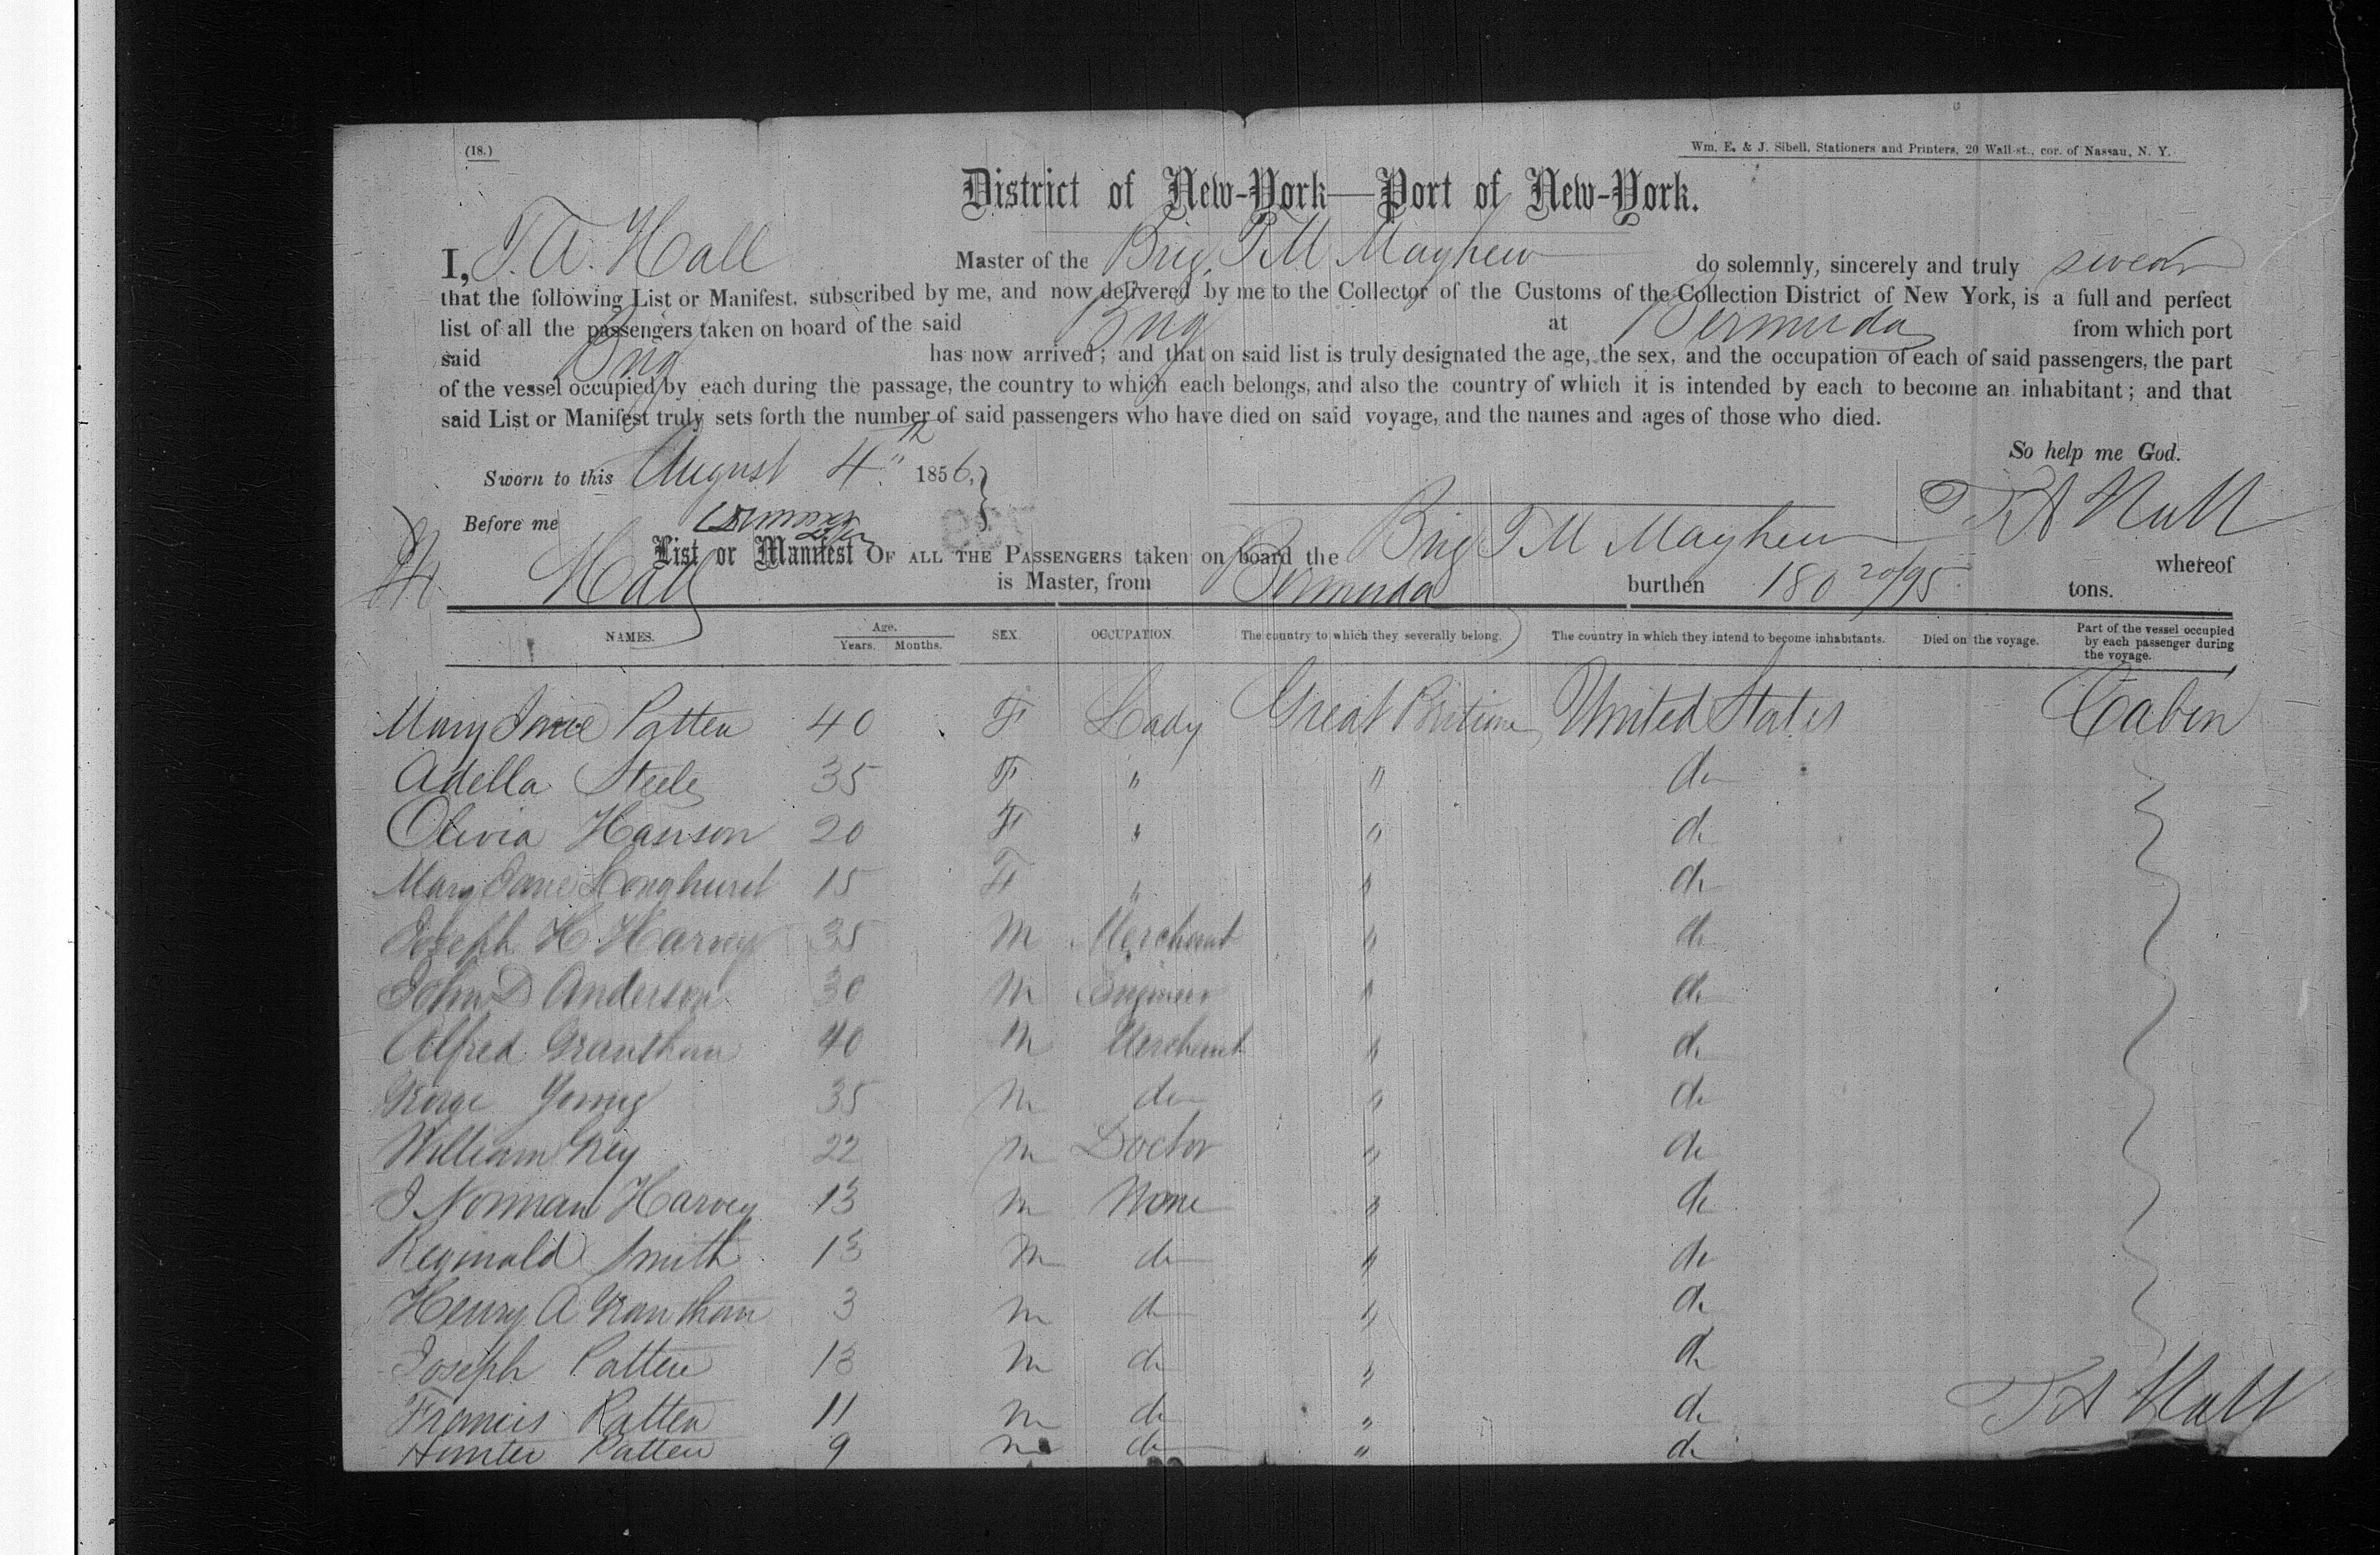 (18.)
Wm. E. & J. Sibell, Stationers and Printers, 20 Wall-st., cor. of Nassau, N. Y.
District of New-York—Port of New-York.
I, T. A. Hall Master of the Brig T M Mayhew do solemnly, sincerely and truly swear
that the following List or Manifest, subscribed by me, and now delivered by me to the Collector of the Customs of the Collection District of New York, is a full and perfect
list of all the passengers taken on board of the said Brig at Bermuda from which port
said Brig has now arrived; and that on said list is truly designated the age, the sex, and the occupation of each of said passengers, the part
of the vessel occupied by each during the passage, the country to which each belongs, and also the country of which it is intended by each to become an inhabitant; and that
said List or Manifest truly sets forth the number of said passengers who have died on said voyage, and the names and ages of those who died.
So help me God.
Sworn to this August 4th 1856,
T A Hall
Before me
List or Manifest OF ALL THE PASSENGERS taken on board the Brig T M Mayhew whereof
Hall is Master, from Bermuda burthen 180 20/95 tons.
NAMES. Age. Years. Months. SEX. OCCUPATION. The country to which they severally belong. The country in which they intend to become inhabitants. Died on the voyage. Part of the vessel occupied by each passenger during the voyage.
Mary Jane Patten 40 F Lady Great Britian United States Cabin
Adella Steele 35 F " " do
Olivia Hanson 20 F " " do
Mary Jane Longhurst 15 F " " do
Joseph H. Harvey 35 M Merchant " do
John D Anderson 30 M Engineer " do
Alfred Grantham 40 M Merchant " do
George Young 35 M do " do
William Grey 22 M Doctor " do
J Norman Harvey 13 M None " do
Reginald Smith 13 M do " do
Henry A Grantham 3 M do " do
Joseph Patten 13 M do " do
Francis Patten 11 M do " do
T A Hall
Hunter Patten 9 M do " do